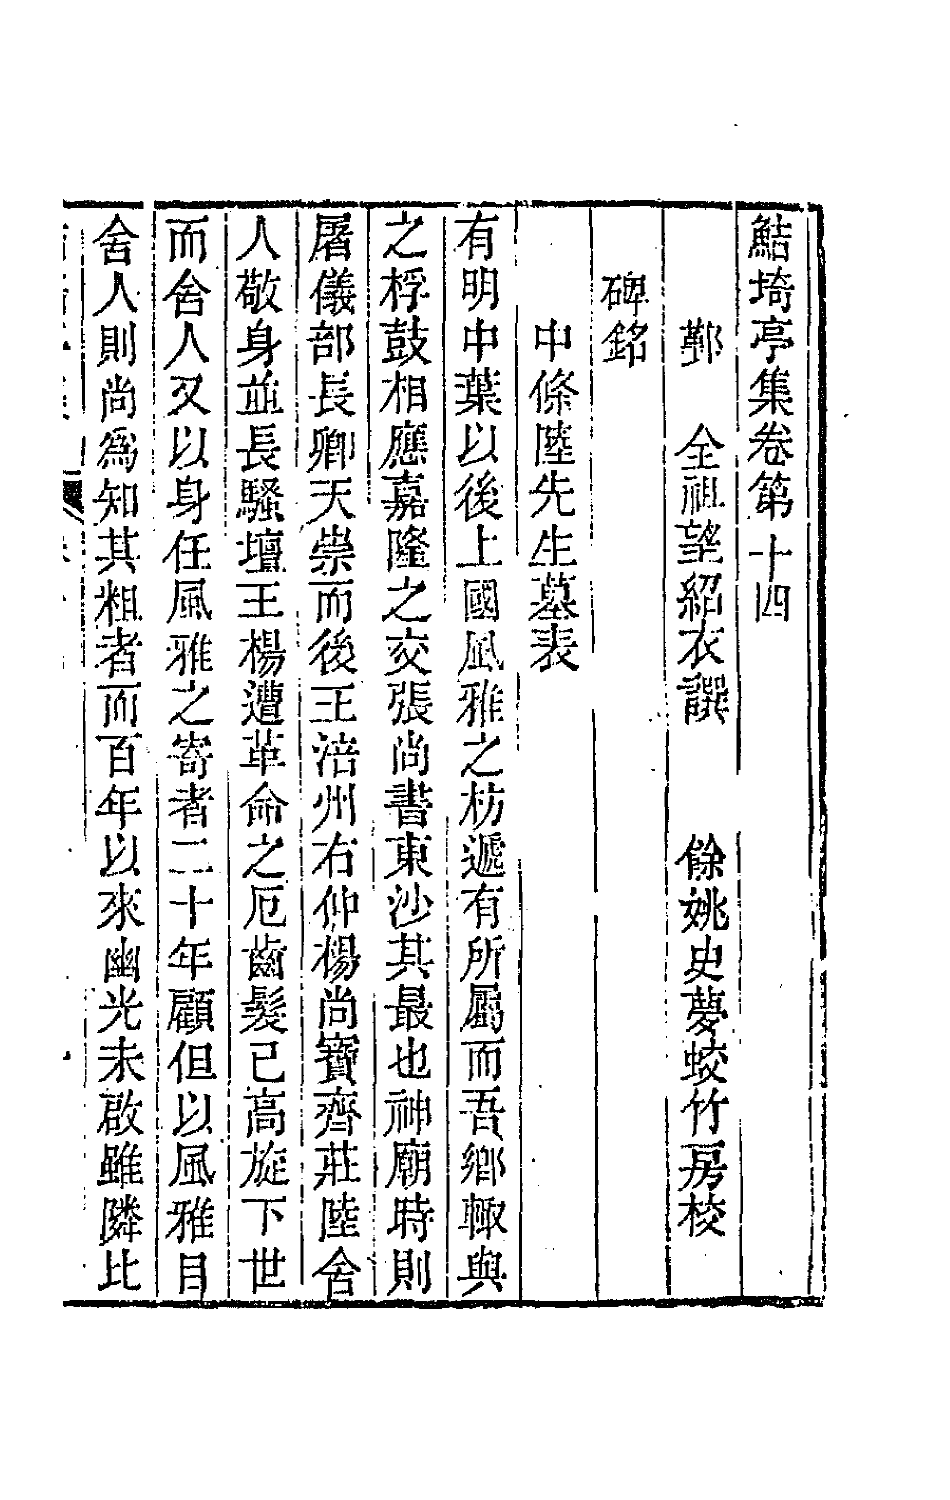 鮚埼亭集卷第十四
鄞　全祖望紹衣譔　餘姚史夢蛟竹房校
碑銘
中條陸先生墓表
有明中葉以後上國風雅之枋遞有所屬而吾鄉輙與
之桴鼓相應嘉隆之交張尚書東沙其最也神廟時則
屠儀部長卿天崇而後王涪州右仲楊尚寶齊莊陸舍
人敬身並長騷壇王楊遭革命之厄齒髮已高旋下世
而舍人又以身任風雅之寄者二十年顧但以風雅目
舍人則尚爲知其粗者而百年以來幽光未啟雖隣比